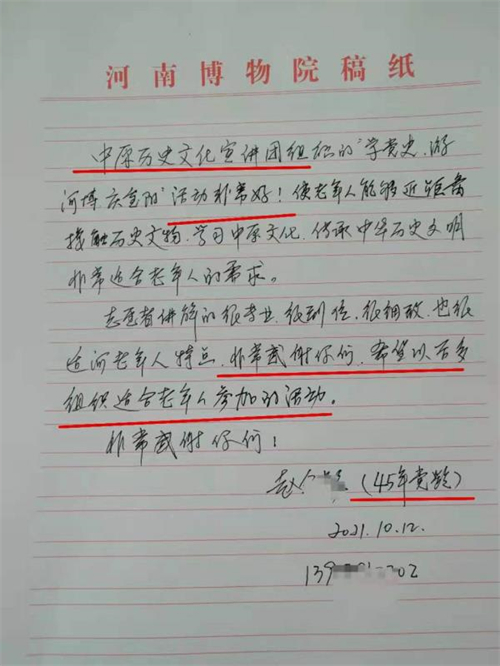 河南博物院稿纸
中原历史文化宣讲团组织的“学党史、游
河博、庆重阳”活动非常好！使老年人能够近距离
接触历史文物，学习中原文化、传承中华历史文明
非常适合老年人的需求。
志愿者讲解的很专业、很到位、很细致、也很
适合老年人特点，非常感谢你们，希望以后多
组织适合老年人参加的活动。
非常感谢你们！
赵（45年党龄）
2021.10.12.
139 202